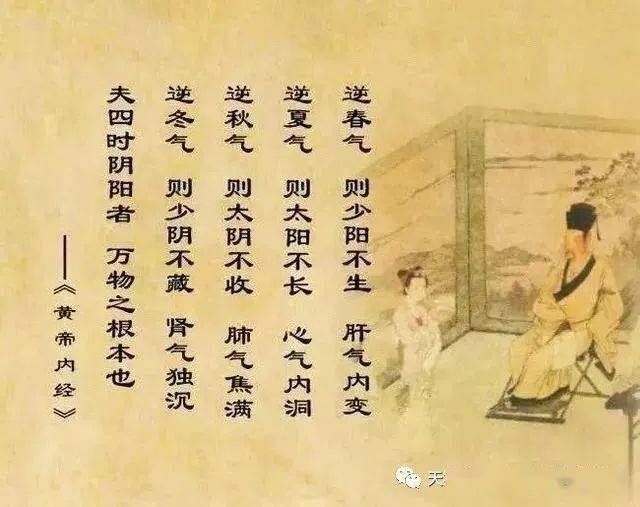 逆春气 则少阳不生 肝气内变
逆夏气 则太阳不长 心气内洞
逆秋气 则太阴不收 肺气焦满
逆冬气 则少阴不藏 肾气独沉
夫四时阴阳者 万物之根本也
——《黄帝内经》
天